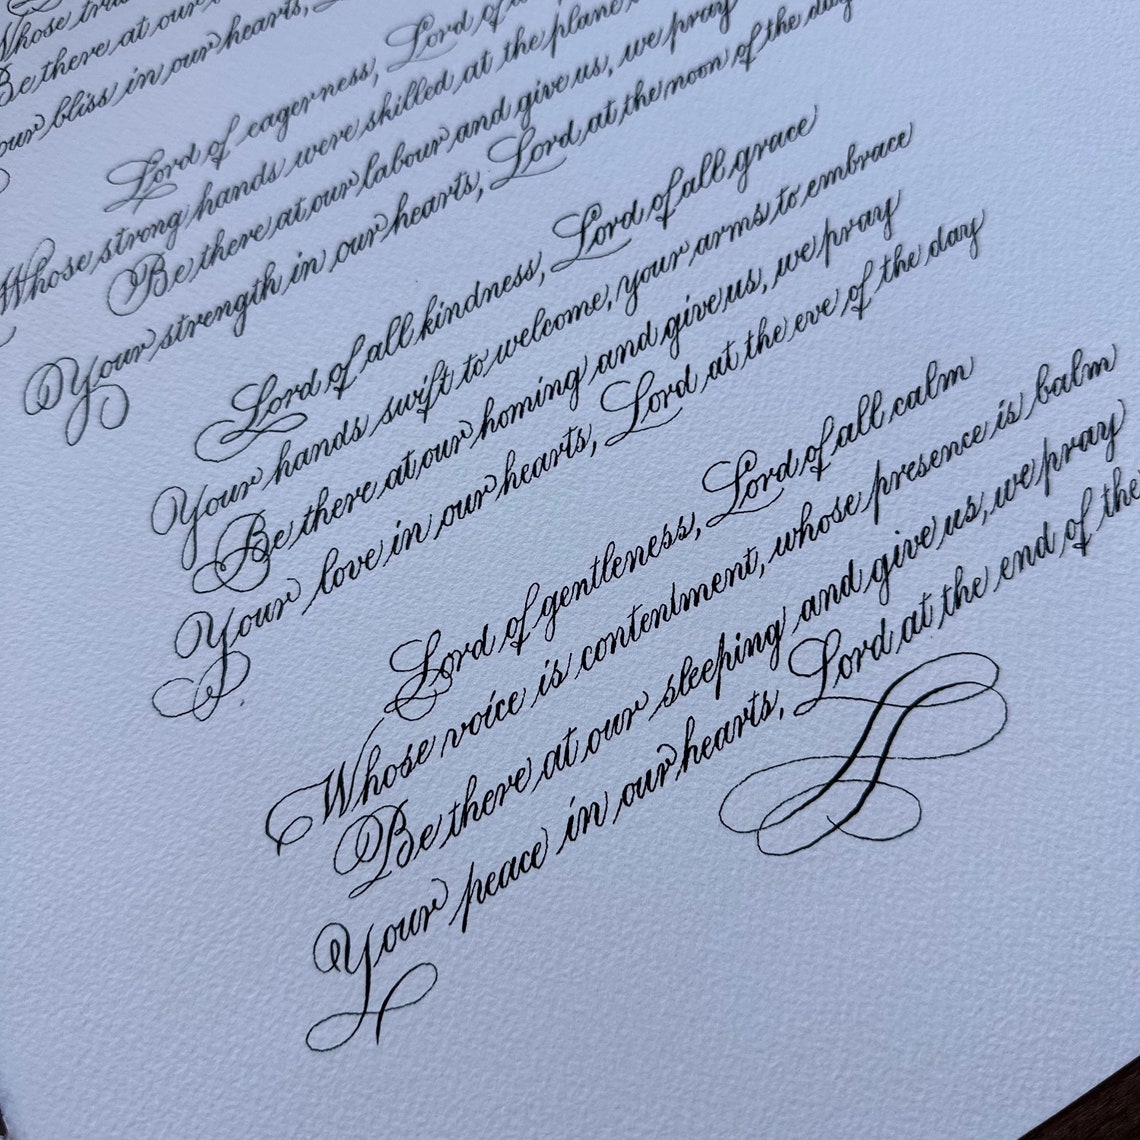 Whose
Be there at our
our bliss in our hearts,
Lord of eagerness, Lord of
Whose strong hands were skilled at the plane
Be there at our labour and give us, we pray
Your strength in our hearts, Lord at the noon of the day
Lord of all kindness, Lord of all grace
Your hands swift to welcome, your arms to embrace
Be there at our homing and give us, we pray
Your love in our hearts, Lord at the eve of the day
Lord of gentleness, Lord of all calm
Whose voice is contentment, whose presence is balm
Be there at our sleeping and give us, we pray
Your peace in our hearts, Lord at the end of the